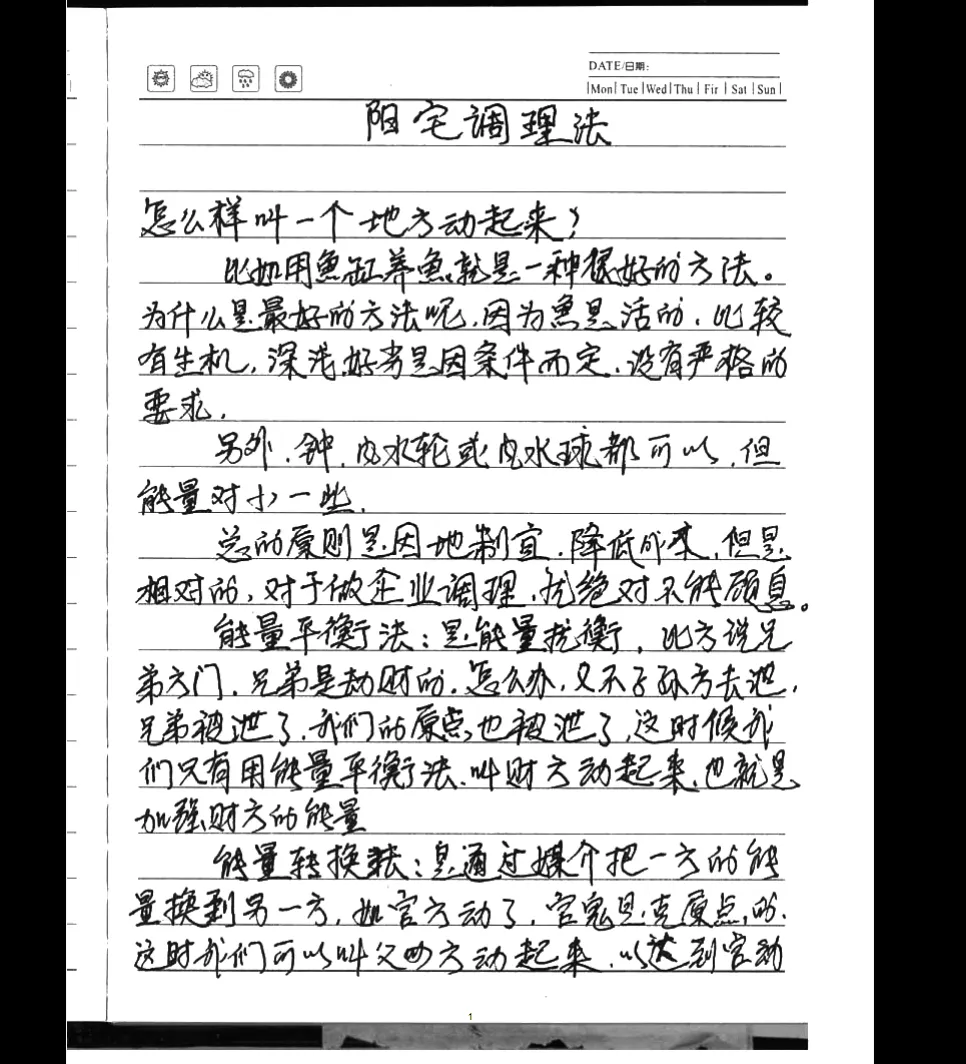 DATE/日期:
Mon Tue Wed Thu Fir Sat Sun
阳宅调理法
怎么样叫一个地方动起来?
比如用鱼缸养鱼就是一种很好的方法。
为什么是最好的方法呢,因为鱼是活的,比较
有生机,深浅好劣是因条件而定,没有严格的
要求,
另外,钟,内水轮或内水球都可以,但
能量对小一些,
总的原则是因地制宜,降低成本,但是
相对的,对于做企业调理,就绝对不能顾息。
能量平衡法:是能量扰衡,比方说兄
弟方门,兄弟是劫财的,怎么办,又不子孙方去泄,
兄弟被泄了,我们的原点也被泄了,这时候我
们只有用能量平衡法,叫财方动起来,也就是
加强财方的能量
能量转换法:是通过媒介把一方的能
量换到另一方,如官方动了,官鬼是克原点的,
这时我们可以叫父母方动起来,以达到官动
1